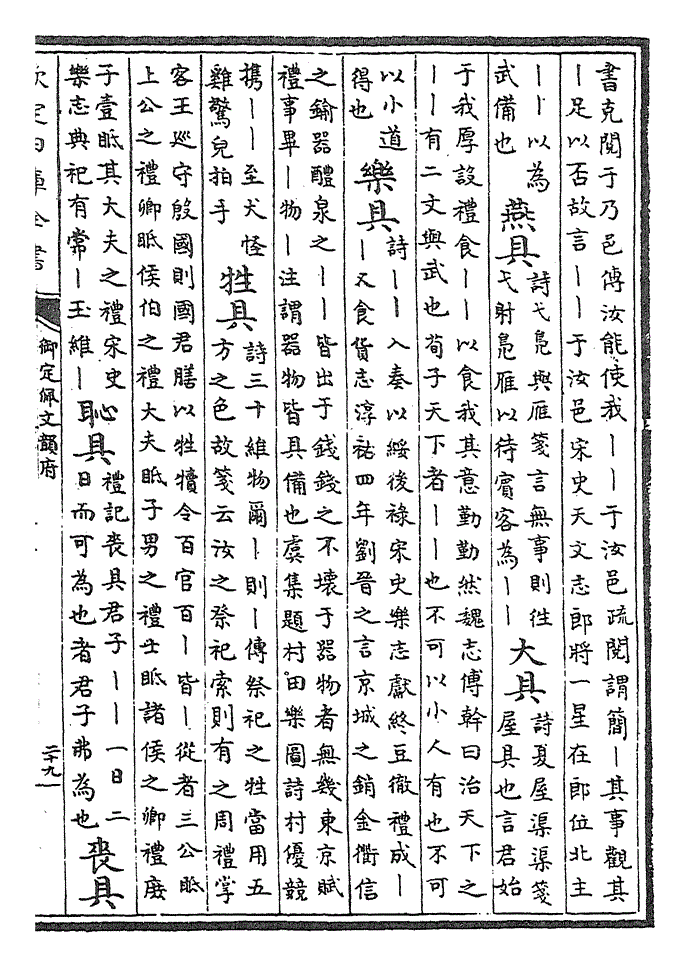 書克閱于乃邑傳汝能使我丨丨于汝邑疏閱謂簡丨其事觀其
丨足以否故言丨丨于汝邑宋史天文志郎將一星在郎位北主
丨丨以為
武備也
燕具
詩弋鳬與雁箋言無事則往
弋射鳬雁以待賓客為丨丨
大具
詩夏屋渠渠箋
屋具也言君始
于我厚設禮食丨丨以食我其意勤勤然魏志傅幹曰治天下之
丨丨有二文與武也荀子天下者丨丨也不可以小人有也不可
以小道
得也
樂具
詩丨丨入奏以綏後祿宋史樂志獻終豆徹禮成丨
丨又食貨志淳祐四年劉晉之言京城之銷金衢信
之鍮器醴泉之丨丨皆出于錢錢之不壞于器物者無幾東京賦
禮事畢丨物丨注謂器物皆具備也虞集題村田樂圖詩村優競
携丨丨至犬怪
雞驚兒拍手
牲具
詩三十維物爾丨則丨傳祭祀之牲當用五
方之色故箋云汝之祭祀索則有之周禮掌
客王廵守殷國則國君膳以牲犢令百官百丨皆丨從者三公眡
上公之禮卿眡侯伯之禮大夫眡子男之禮士眡諸侯之卿禮庶
子壹眡其大夫之禮宋史
樂志典祀有常丨玉維丨
恥具
禮記喪具君子丨丨一日二
日而可為也者君子弗為也
喪具
欽定四庫全書
御定佩文韻府
二十九